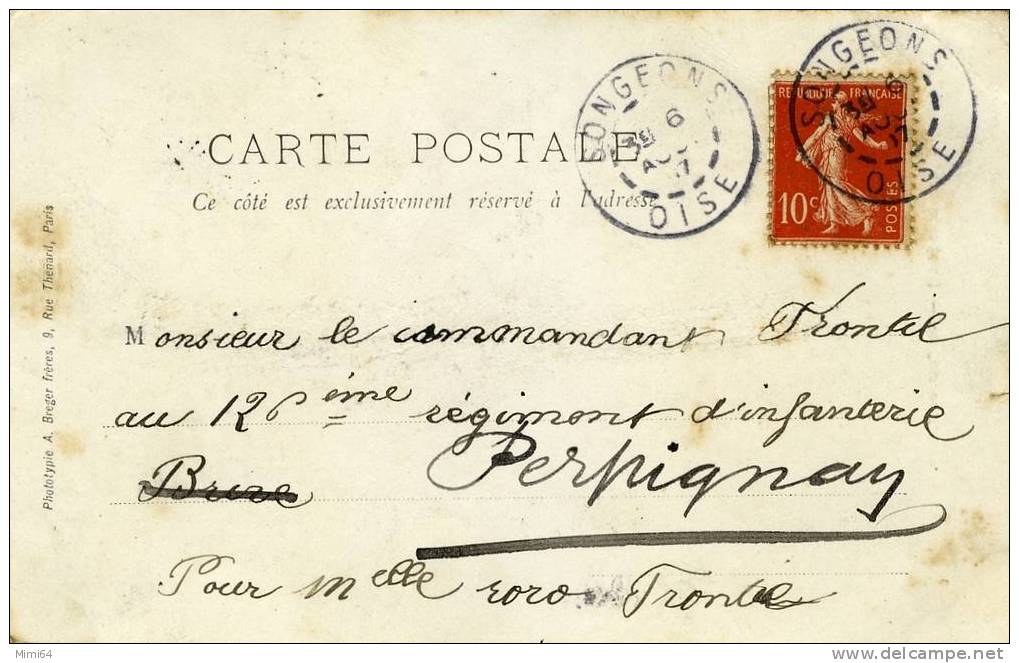 CARTE POSTALE
Ce côté est exclusivement réservé à l'adresse
SONGEONS
6
OISE
SONGEONS
6
OISE
REPUBLIQUE FRANÇAISE
10c
POSTES
Monsieur le commandant Frontil
au 126ème régiment d'infanterie
Brive
Perpignan
Pour Melle roro Frontil
Phototypie A. Breger frères, 9, Rue Thenard, Paris
Mimi64
delcampe.net